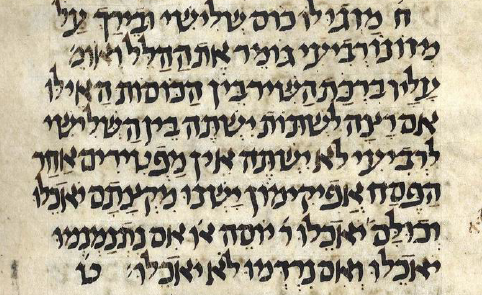 ח מזגו לו כוס שלישי ובירך על
מזונו רביעי גומר את ההלל ואומ'
עליו ברכת השיר בין הכוסות האילו
אם רצה לשתות ישתה בין השלישי
לרביעי לא ישתה אין מפטירים אחר
הפסח אפיקימון ישנו מקצתם יאכלו
וכולם לא יאכלו ר' יוסה או' אם נתנמנמו
יאכלו ואם נרדמו לא יאכלו ט